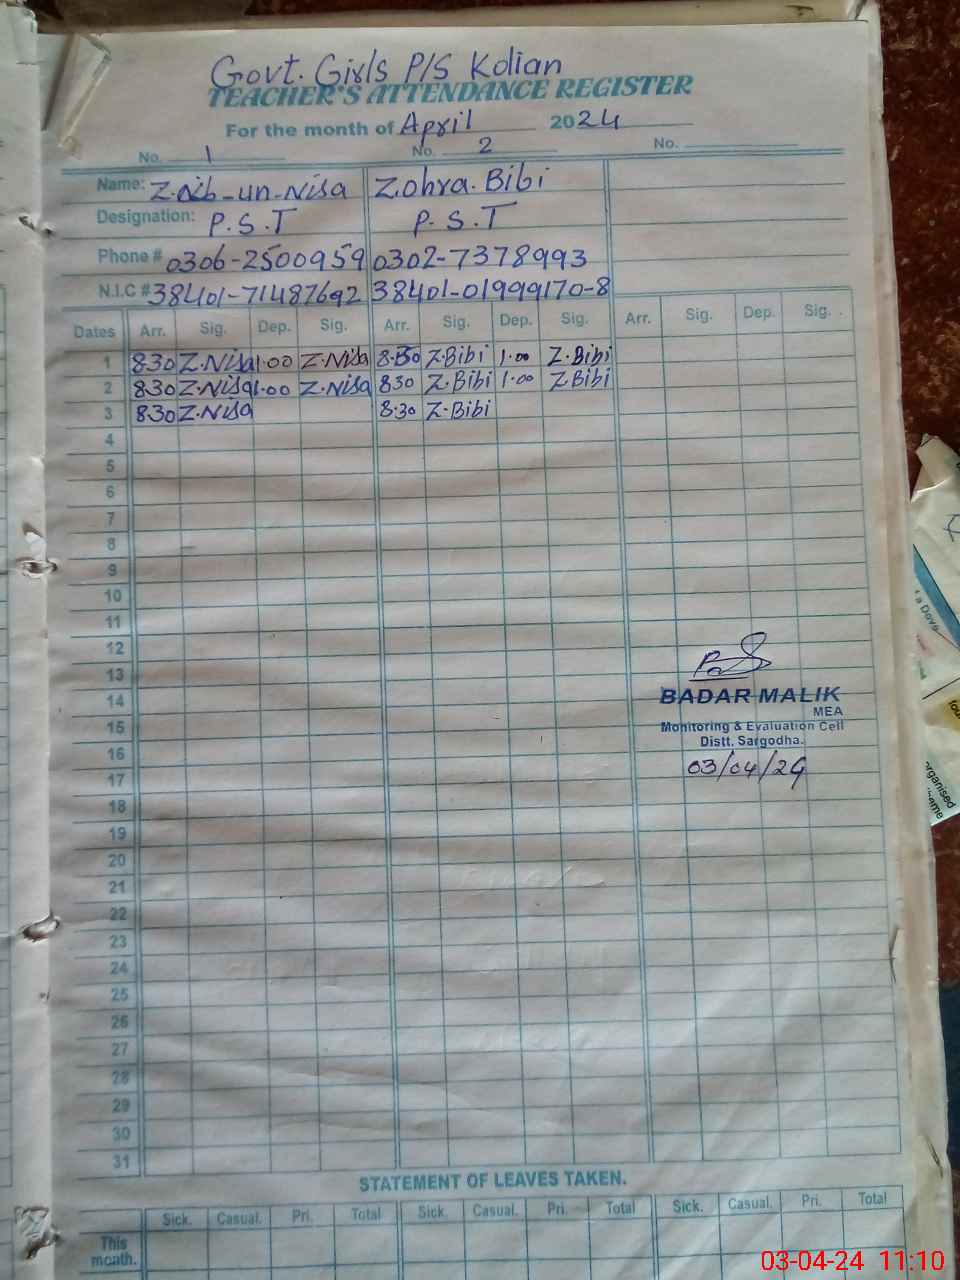 Govt. Girls P/S Kolian
TEACHER'S ATTENDANCE REGISTER
For the month of April 2024
No. 1 No. 2 No.
Name: Z.aib-un-Nisa Zohra.Bibi
Designation: P.S.T P.S.T
Phone # 0306-2500959 0302-7378993
N.I.C # 38401-71487692 38401-01999170-8
Dates Arr. Sig. Dep. Sig. Arr. Sig. Dep. Sig. Arr. Sig. Dep. Sig.
1 830 Z.Nisa 1.00 Z.Nisa 8.30 Z.Bibi 1.00 Z.Bibi
2 830 Z.Nisa 1.00 Z.Nisa 830 Z.Bibi 1.00 Z.Bibi
3 830 Z.Nisa 8.30 Z.Bibi
4
5
6
7
8
9
10
11
12
13
14
BADAR MALIK
MEA
15
Monitoring & Evaluation Cell
Distt. Sargodha.
16
03/04/24
17
18
19
20
21
22
23
24
25
26
27
28
29
30
31
STATEMENT OF LEAVES TAKEN.
Sick. Casual. Pri. Total Sick. Casual. Pri. Total Sick. Casual. Pri. Total
This
month.
organised
03-04-24 11:10